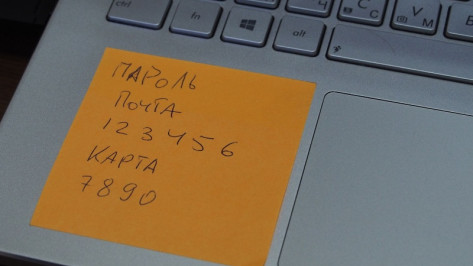 ctrl fn alt
Ч С М
ПАРОЛЬ
ПОЧТА
123456
КАРТА
7890